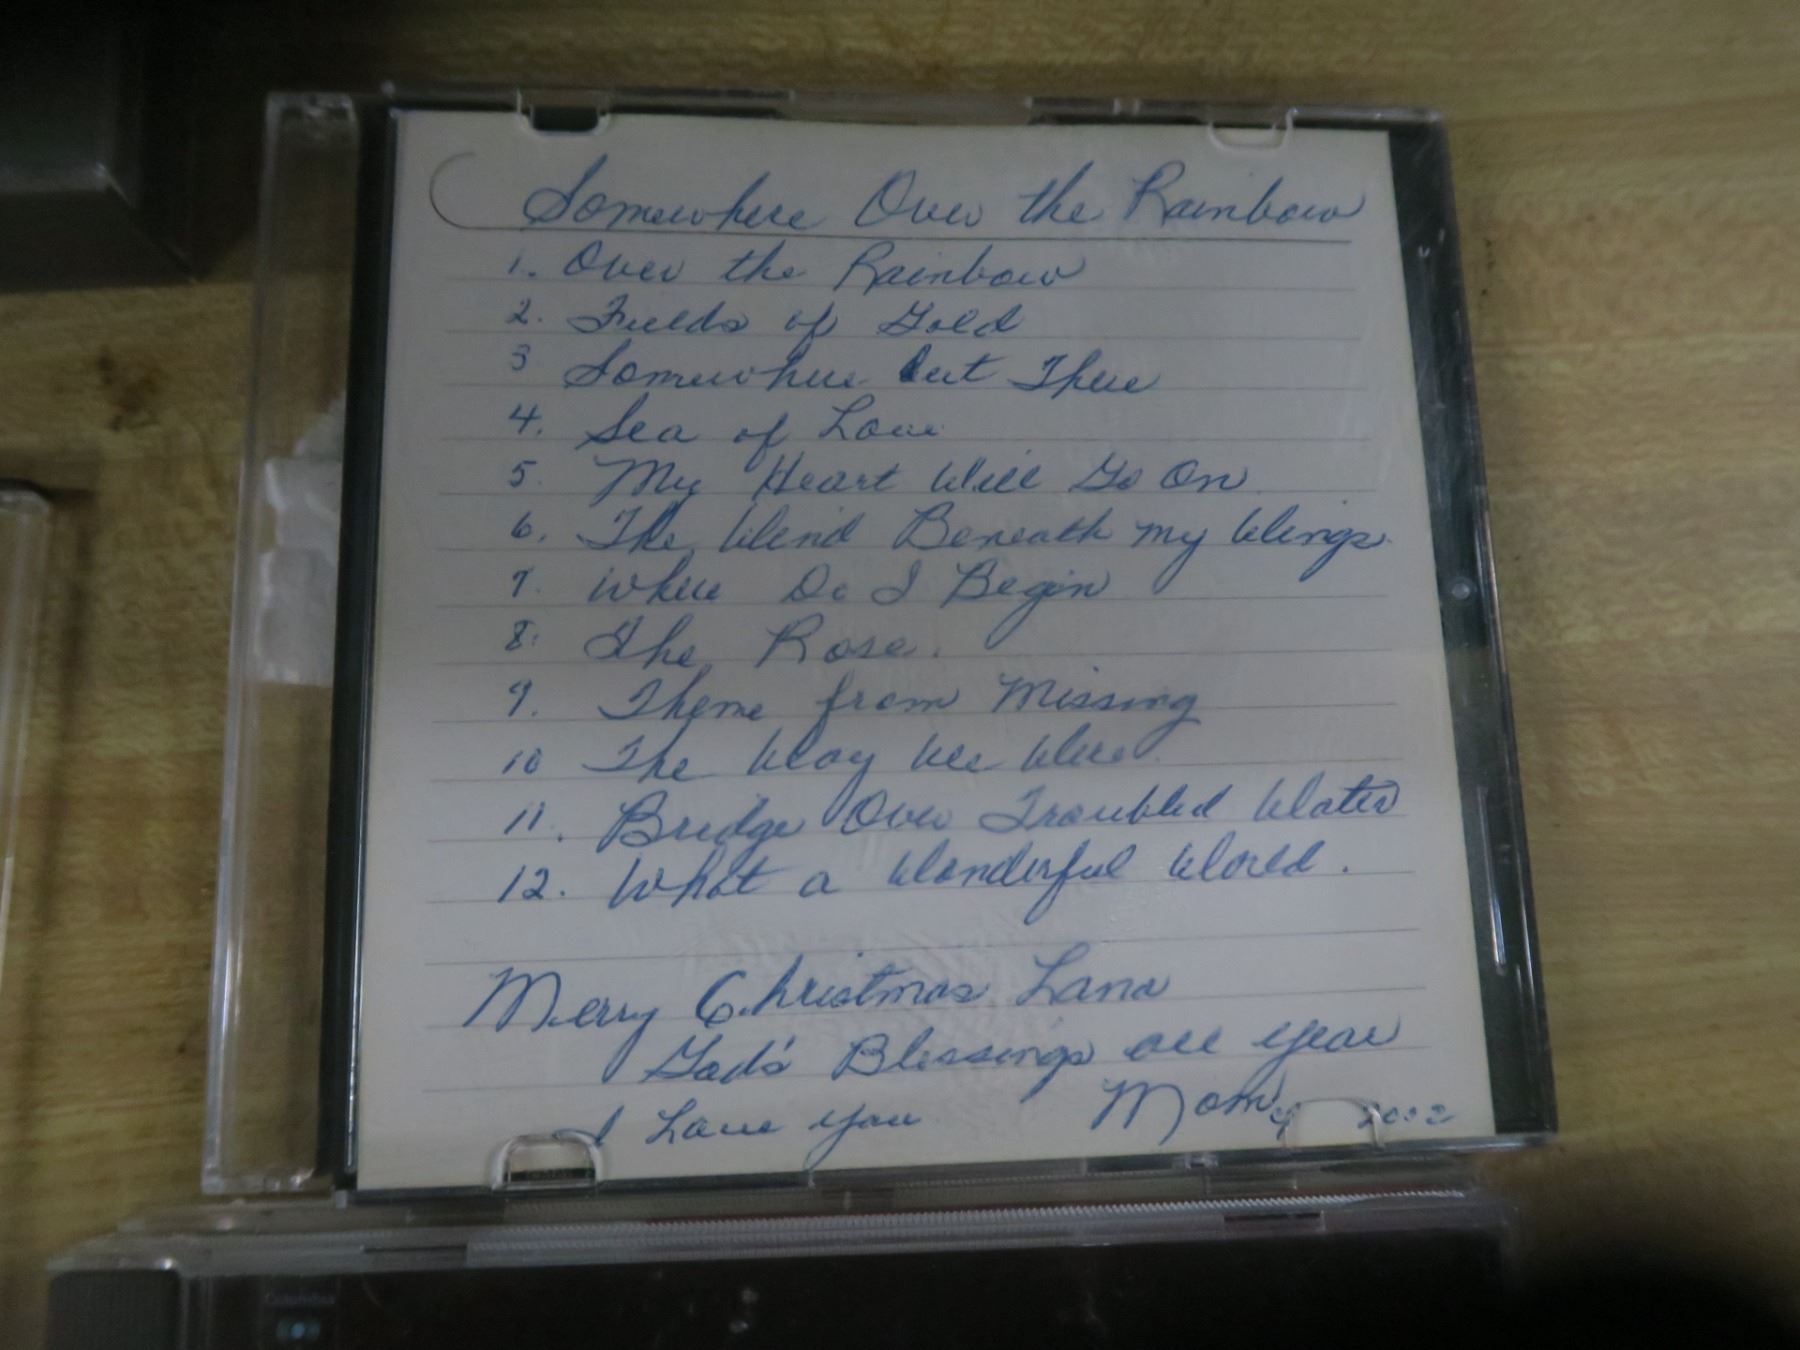 Somewhere Over the Rainbow
1. Over the Rainbow
2. Fields of Gold
3 Somewhere Out There
4. Sea of Love
5. My Heart Will Go On
6. The Wind Beneath My Wings.
7. Where Do I Begin
8. The Rose.
9. Theme from Missing
10 The Way We Were.
11. Bridge Over Troubled Water
12. What a Wonderful World.
Merry Christmas Lana
God's Blessings all year
I Love you Mom 2002
Columbia